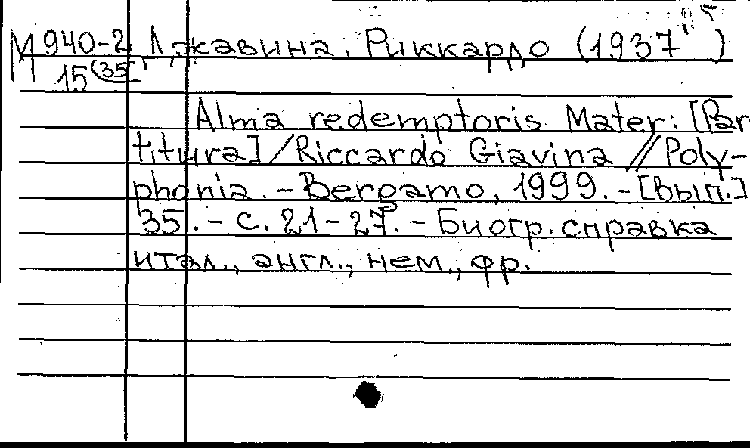 М940-2 Джавина, Риккардо (1937 )
15(35)
Alma redemptoris Mater: [Par
titura] / Riccardo Giavina // Poly-
phonia. - Bergamo, 1999. - [Вып.]
35. - с. 21-27. - Биогр. справка
итал., англ., нем., фр.